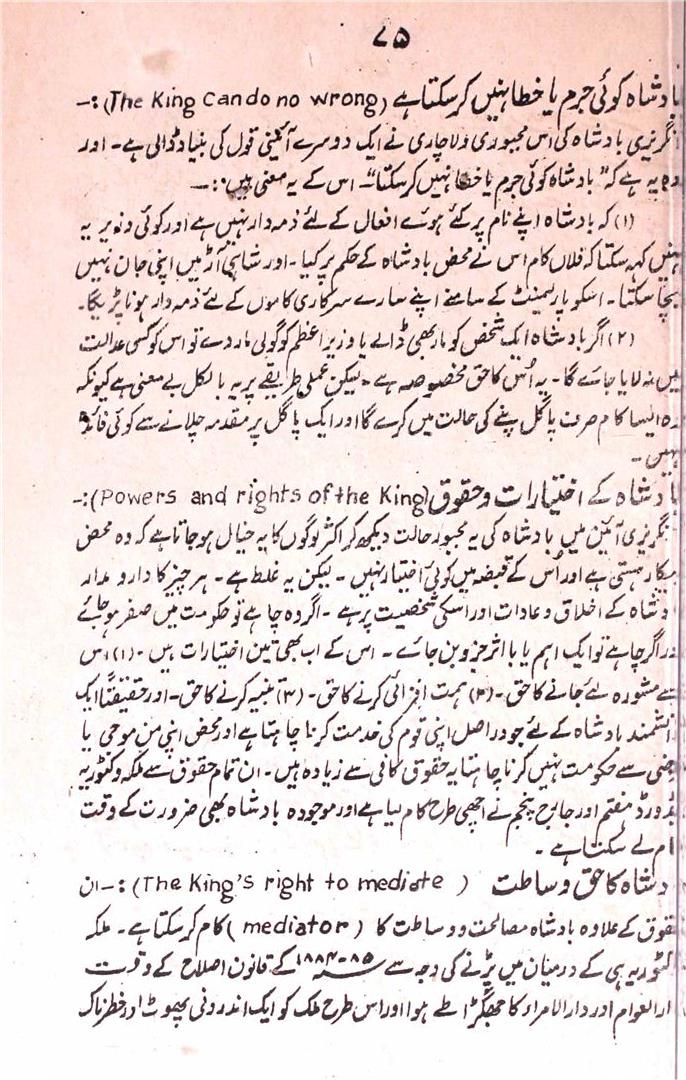 ۷۵
بادشاہ کوئی جرم یا خطا نہیں کر سکتا ہے (The King Can do no wrong) :-
انگریزی بادشاہ کی اس مجبوری و لاچاری نے ایک دوسرے آئینی قول کی بنیاد ڈالی ہے۔ اور
وہ یہ ہے کہ "بادشاہ کوئی جرم یا خطا نہیں کر سکتا"۔ اس کے یہ معنی ہیں :-
(۱) کہ بادشاہ اپنے نام پر کئے ہوئے افعال کے لئے ذمہ دار نہیں ہے اور کوئی وزیر یہ
نہیں کہہ سکتا کہ فلاں کام اس نے محض بادشاہ کے حکم پر کیا۔ اور شاہی آڑ میں اپنی جان نہیں
بچا سکتا۔ اسکو پارلیمنٹ کے سامنے اپنے سارے سرکاری کاموں کے لئے ذمہ دار ہونا پڑیگا۔
(۲) اگر بادشاہ ایک شخص کو مار بھی ڈالے یا وزیر اعظم کو گولی مار دے تو اس کو کسی عدالت
میں نہ لایا جائے گا۔ یہ اُس کا حق مخصوصہ ہے۔ لیکن عملی طریقے پر یہ بالکل بے معنی ہے کیونکہ
وہ ایسا کام صرف پاگل پنے کی حالت میں کرے گا اور ایک پاگل پر مقدمہ چلانے سے کوئی فائدہ
نہیں۔
بادشاہ کے اختیارات و حقوق (Powers and rights of the King) :-
انگریزی آئین میں بادشاہ کی یہ مجبور حالت دیکھ کر اکثر لوگوں کا یہ خیال ہو جاتا ہے کہ وہ محض
بیکار ہستی ہے اور اُس کے قبضہ میں کوئی اختیار نہیں۔ لیکن یہ غلط ہے۔ ہر چیز کا دار و مدار
بادشاہ کے اخلاق و عادات اور اسکی شخصیت پر ہے۔ اگر وہ چاہے تو حکومت میں صفر ہو جائے
اور اگر چاہے تو ایک اہم یا با اثر جزو بن جائے۔ اس کے اب بھی تین اختیارات ہیں۔ (۱) اس
سے مشورہ لئے جانے کا حق۔ (۲) ہمت افزائی کرنے کا حق۔ (۳) تنبیہ کرنے کا حق۔ اور حقیقتاً ایک
دانشمند بادشاہ کے لئے جو دراصل اپنی قوم کی خدمت کرنا چاہتا ہے اور محض اپنی من موجی یا
مرضی سے حکومت نہیں کرنا چاہتا یہ حقوق کافی سے زیادہ ہیں۔ ان تمام حقوق سے ملکہ وکٹوریہ
ایڈورڈ ہفتم اور جارج پنجم نے اچھی طرح کام لیا ہے اور موجودہ بادشاہ بھی ضرورت کے وقت
کام لے سکتا ہے۔
بادشاہ کا حق وساطت (The King's right to mediate) :- ان
حقوق کے علاوہ بادشاہ مصالحت و وساطت کا (mediator) کام کر سکتا ہے۔ ملکہ
وکٹوریہ ہی کے درمیان میں پڑنے کی وجہ سے ۸۵-۱۸۸۴ء کے قانون اصلاح کے وقت
دارالعوام اور دارالامراء کا جھگڑا طے ہوا اور اس طرح ملک کو ایک اندرونی پھوٹ اور خطرناک